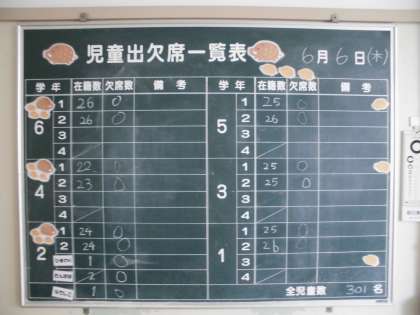 児童出欠席一覧表 6月6日(木)
学年 在籍数 欠席数 備考 学年 在籍数 欠席数 備考
6 1 26 0 5 1 25 0
2 26 0 2 26 0
3 3
4 4
4 1 22 0 3 1 25 0
2 23 0 2 25 0
3 3
4 4
2 1 24 0 1 1 25 0
2 24 0 2 26 0
1 0 3
2 0 4
1 0 全児童数 301名